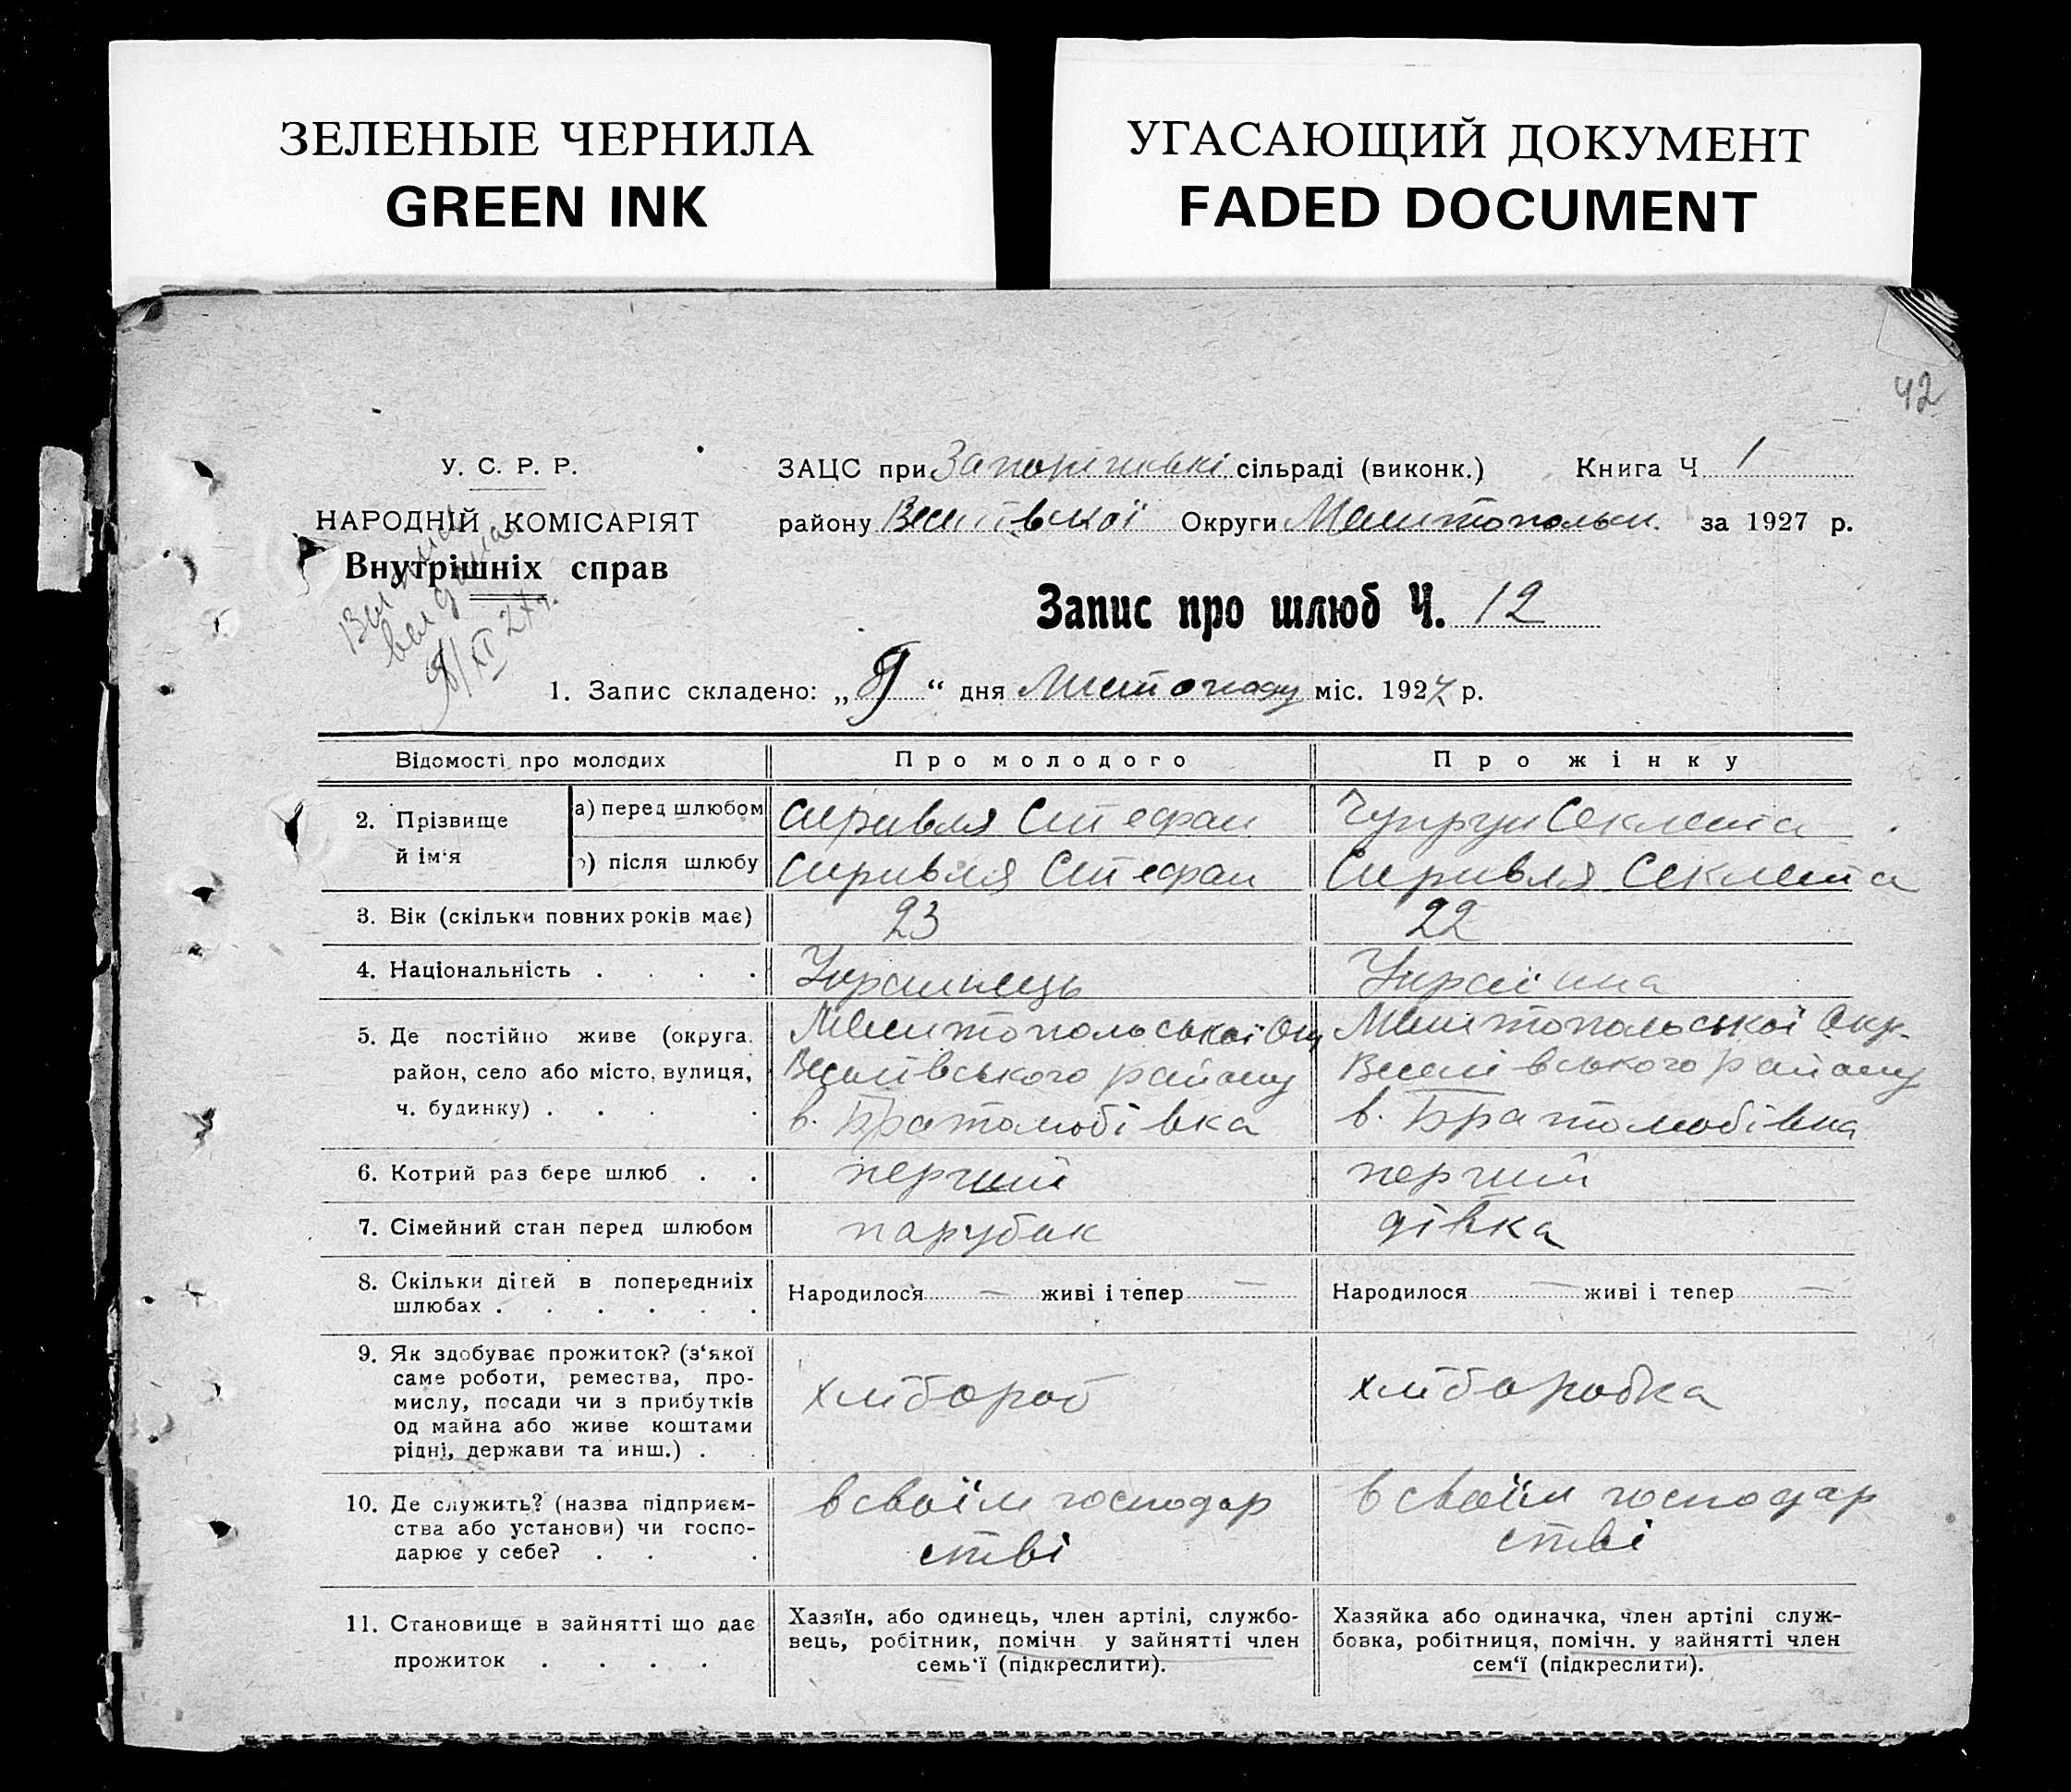 ЗЕЛЕНЫЕ ЧЕРНИЛА
GREEN INK
УГАСАЮЩИЙ ДОКУМЕНТ
FADED DOCUMENT
42
У. С. Р. Р.
НАРОДНІЙ КОМІСАРІЯТ
Внутрішніх справ
ЗАЦС при Запоріжські сільраді (виконк.) Книга Ч 1
району Веселівської Округи Мелитопольск. за 1927 р.
Запис про шлюб Ч. 12
1. Запис складено: „ “ дня Листопаду міс. 1927 р.
Відомості про молодих Про молодого Про жінку
2. Прізвище й ім'я
а) перед шлюбом Стефан Чупрун Секлета
б) після шлюбу Стефан Секлета
3. Вік (скільки повних років має) 23 22
4. Національність . . . . Українець Україінка
5. Де постійно живе (округа, Мелитопольської Ок Мелитопольської Окр.
район, село або місто, вулиця, Веселівського району Веселівського району
ч. будинку) . . . . в. Братолюбівка в. Братолюбівка
6. Котрий раз бере шлюб . . перший перший
7. Сімейний стан перед шлюбом парубок дівка
8. Скільки дітей в попередниіх
шлюбах . . . . . . Народилося — живі і тепер — Народилося — живі і тепер —
9. Як здобуває прожиток? (з'якої
саме роботи, ремества, про-
мислу, посади чи з прибутків
од майна або живе коштами
рідні, держави та инш.) . . хлібороб хліборобка
10. Де служить? (назва підприєм- в своїм господар в своїм господар
ства або установи) чи госпо- стві стві
дарює у себе? . . .
11. Становище в зайнятті що дає
прожиток . . . .
Хазяїн, або одинець, член артілі, службо-
вець, робітник, помічн. у зайнятті член
семь'ї (підкреслити).
Хазяйка або одиначка, член артілі служ-
бовка, робітниця, помічн. у зайнятті член
сем'ї (підкреслити).